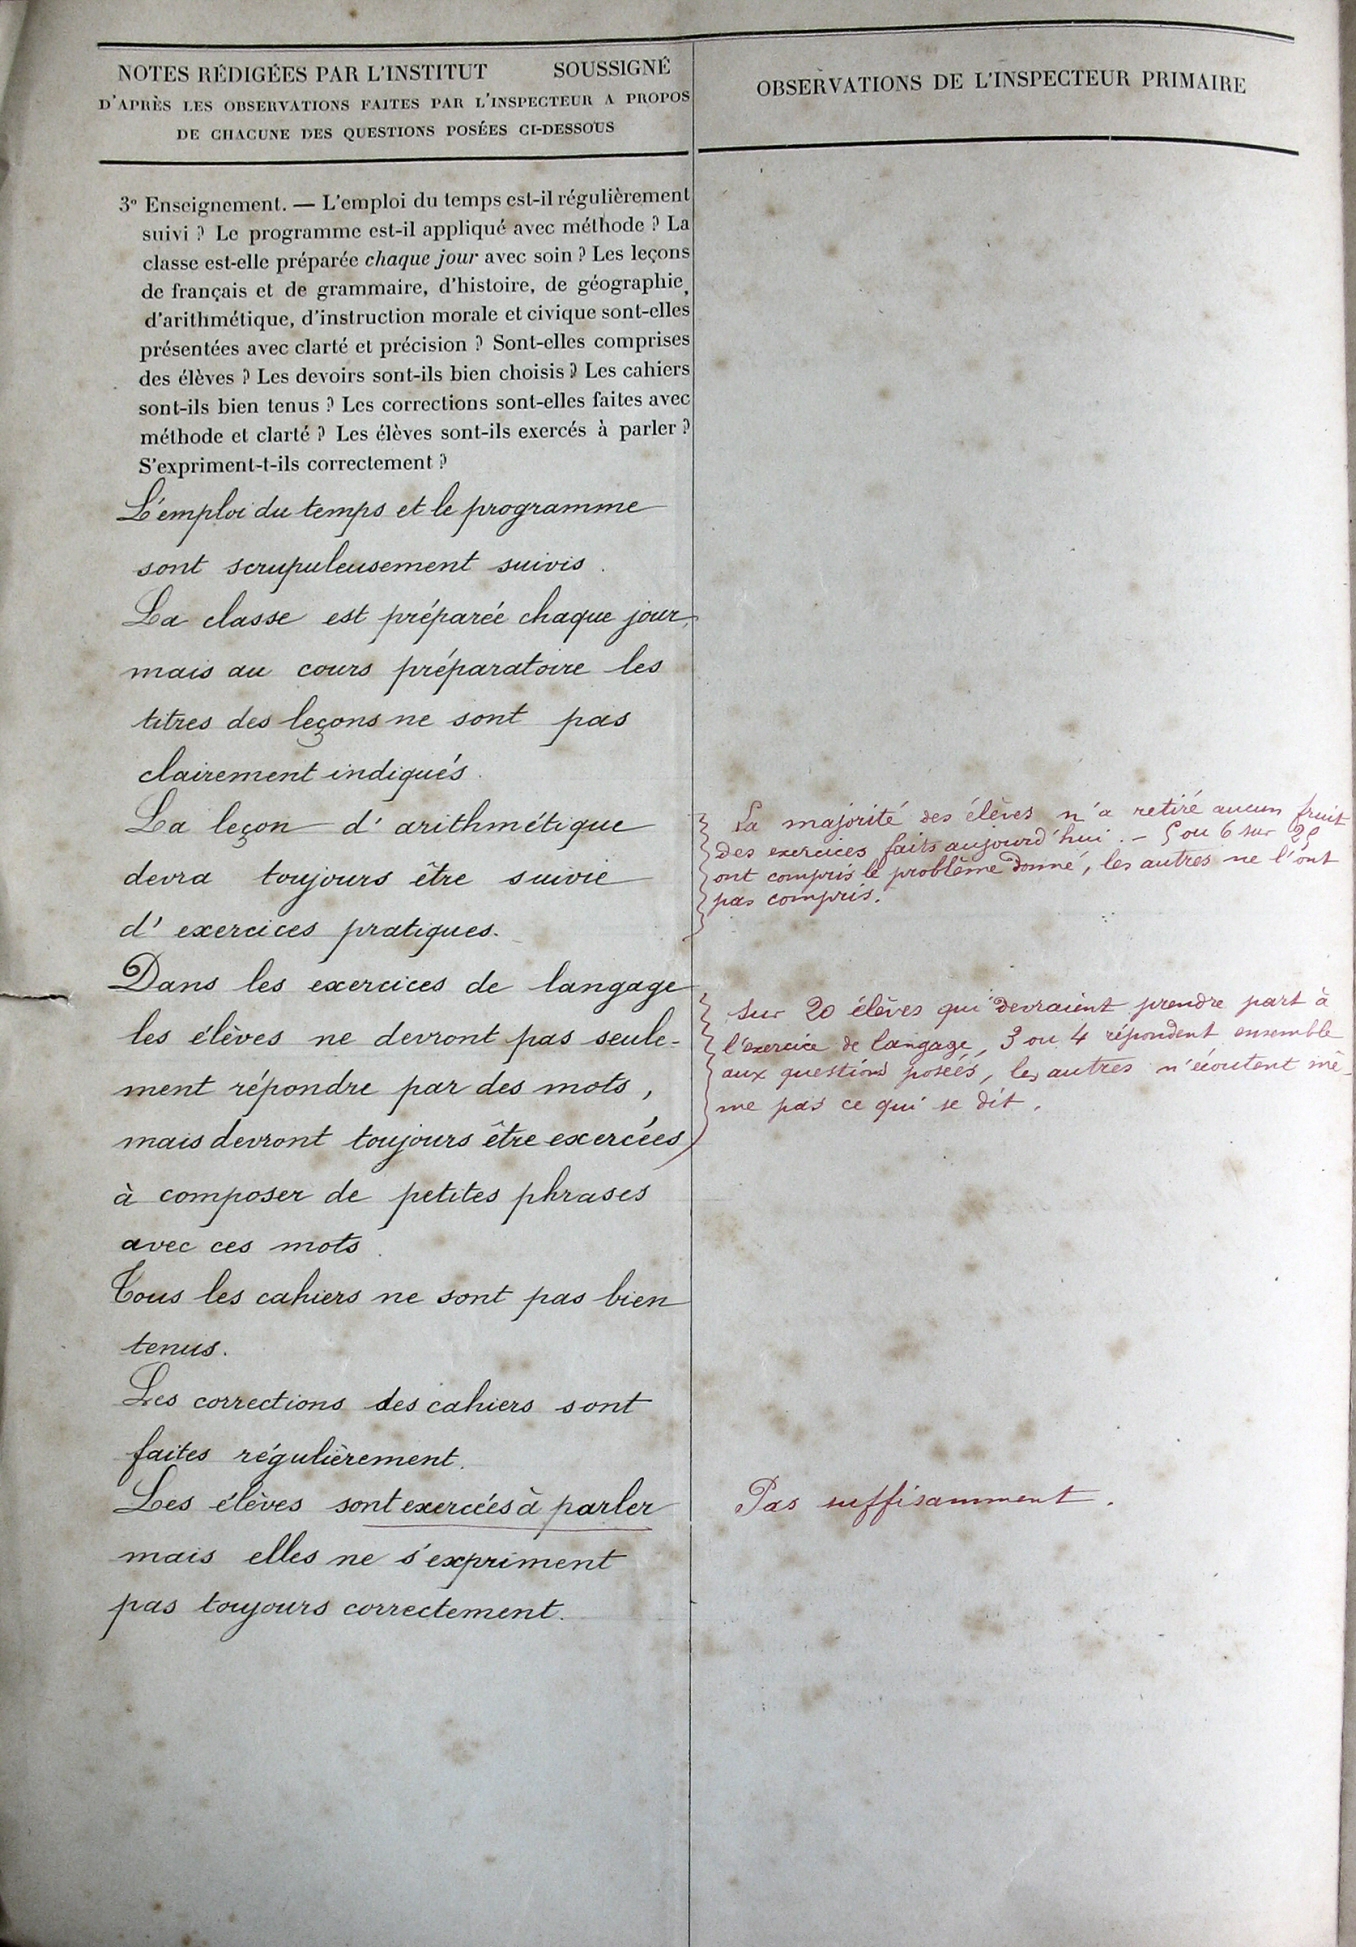 NOTES RÉDIGÉES PAR L'INSTITUT SOUSSIGNÉ
D'APRÈS LES OBSERVATIONS FAITES PAR L'INSPECTEUR A PROPOS
DE CHACUNE DES QUESTIONS POSÉES CI-DESSOUS
3º Enseignement. — L'emploi du temps est-il régulièrement
suivi ? Le programme est-il appliqué avec méthode ? La
classe est-elle préparée chaque jour avec soin ? Les leçons
de français et de grammaire, d'histoire, de géographie,
d'arithmétique, d'instruction morale et civique sont-elles
présentées avec clarté et précision ? Sont-elles comprises
des élèves ? Les devoirs sont-ils bien choisis ? Les cahiers
sont-ils bien tenus ? Les corrections sont-elles faites avec
méthode et clarté ? Les élèves sont-ils exercés à parler ?
S'expriment-t-ils correctement ?
L'emploi du temps et le programme
sont scrupuleusement suivis.
La classe est préparée chaque jour,
mais au cours préparatoire les
titres des leçons ne sont pas
clairement indiqués.
La leçon d'arithmétique
devra toujours être suivie
d'exercices pratiques.
Dans les exercices de langage
les élèves ne devront pas seule-
ment répondre par des mots,
mais devront toujours être exercées
à composer de petites phrases
avec ces mots.
Tous les cahiers ne sont pas bien
tenus.
Les corrections des cahiers sont
faites régulièrement.
Les élèves sont exercées à parler
mais elles ne s'expriment
pas toujours correctement.
OBSERVATIONS DE L'INSPECTEUR PRIMAIRE
La majorité des élèves n'a retiré aucun fruit
des exercices faits aujourd'hui. - 5 ou 6 sur 25
ont compris le problème donné, les autres ne l'ont
pas compris.
Sur 20 élèves qui devraient prendre part à
l'exercice de langage, 3 ou 4 répondent ensemble
aux questions posées, les autres n'écoutent mê-
me pas ce qui se dit.
Pas suffisamment.